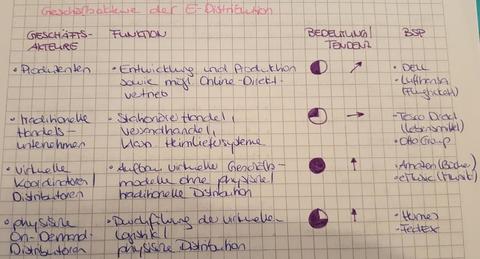 Geschäftsakteure der E-Distribution
GESCHÄFTS-AKTEURE FUNKTION BEDEUTUNG/TENDENZ BSP
• Produzenten • Entwicklung und Produktion • DELL
sowie mögl. Online-Direkt- • Lufthansa
vertrieb (Flugtickets)
• traditionelle • Stationäre Handel, • Tesco Direct
Handels- Versandhandel, (Lebensmittel)
unternehmen klass. Heimliefersysteme • Otto Group
• virtuelle • Aufbau virtuelle Geschäfts- • Amazon (Bücher)
Koordinatoren/ modelle ohne physische/ • eMusic (Musik)
Distributoren traditionelle Distribution
• physische • Durchführung der virtuellen • Hermes
On-Demand- Logistik/ • FedEX
Distributoren physische Distribution